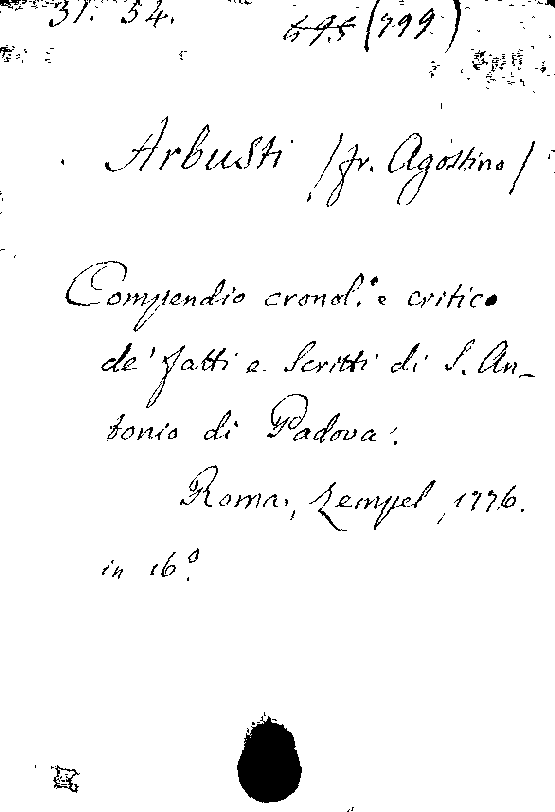 31. 54.
695 (799)
Arbusti /fr. Agostino/
Compendio cronol.º e critico
de' fatti e Scritti di S. An-
tonio di Padova.
Roma, Zempel, 1776.
in 16º.